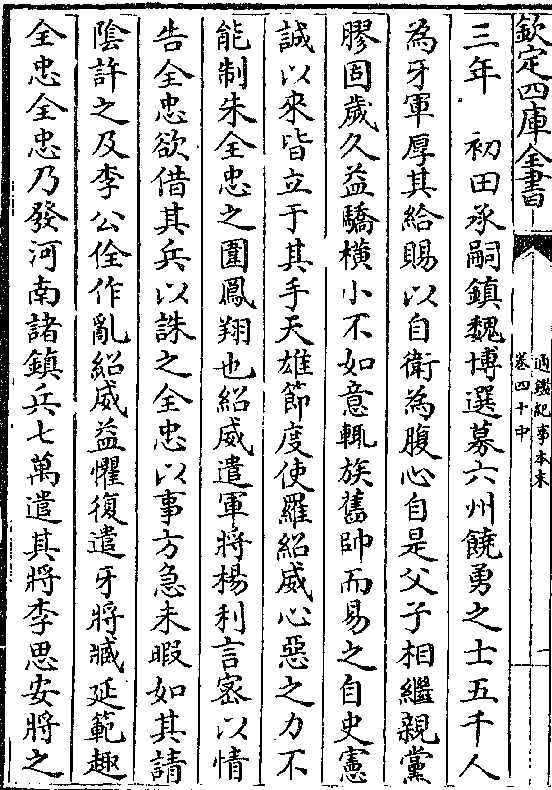 欽定四庫全書
通鑑紀事本末
卷四十中
一
三年　初田承嗣鎮魏博選募六州饒勇之士五千人
為牙軍厚其給賜以自衛為腹心自是父子相繼親黨
膠固歲久益驕橫小不如意輒族舊帥而易之自史憲
誠以來皆立于其手天雄節度使羅紹威心惡之力不
能制朱全忠之圍鳳翔也紹威遣軍將楊利言宻以情
告全忠欲借其兵以誅之全忠以事方急未暇如其請
陰許之及李公佺作亂紹威益懼復遣牙將臧延範趣
全忠全忠乃發河南諸鎮兵七萬遣其將李思安將之